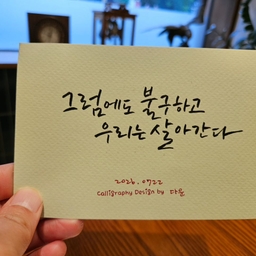 그럼에도 불구하고
우리는 살아간다
2026. 07.22
Calligraphy Design by 다온